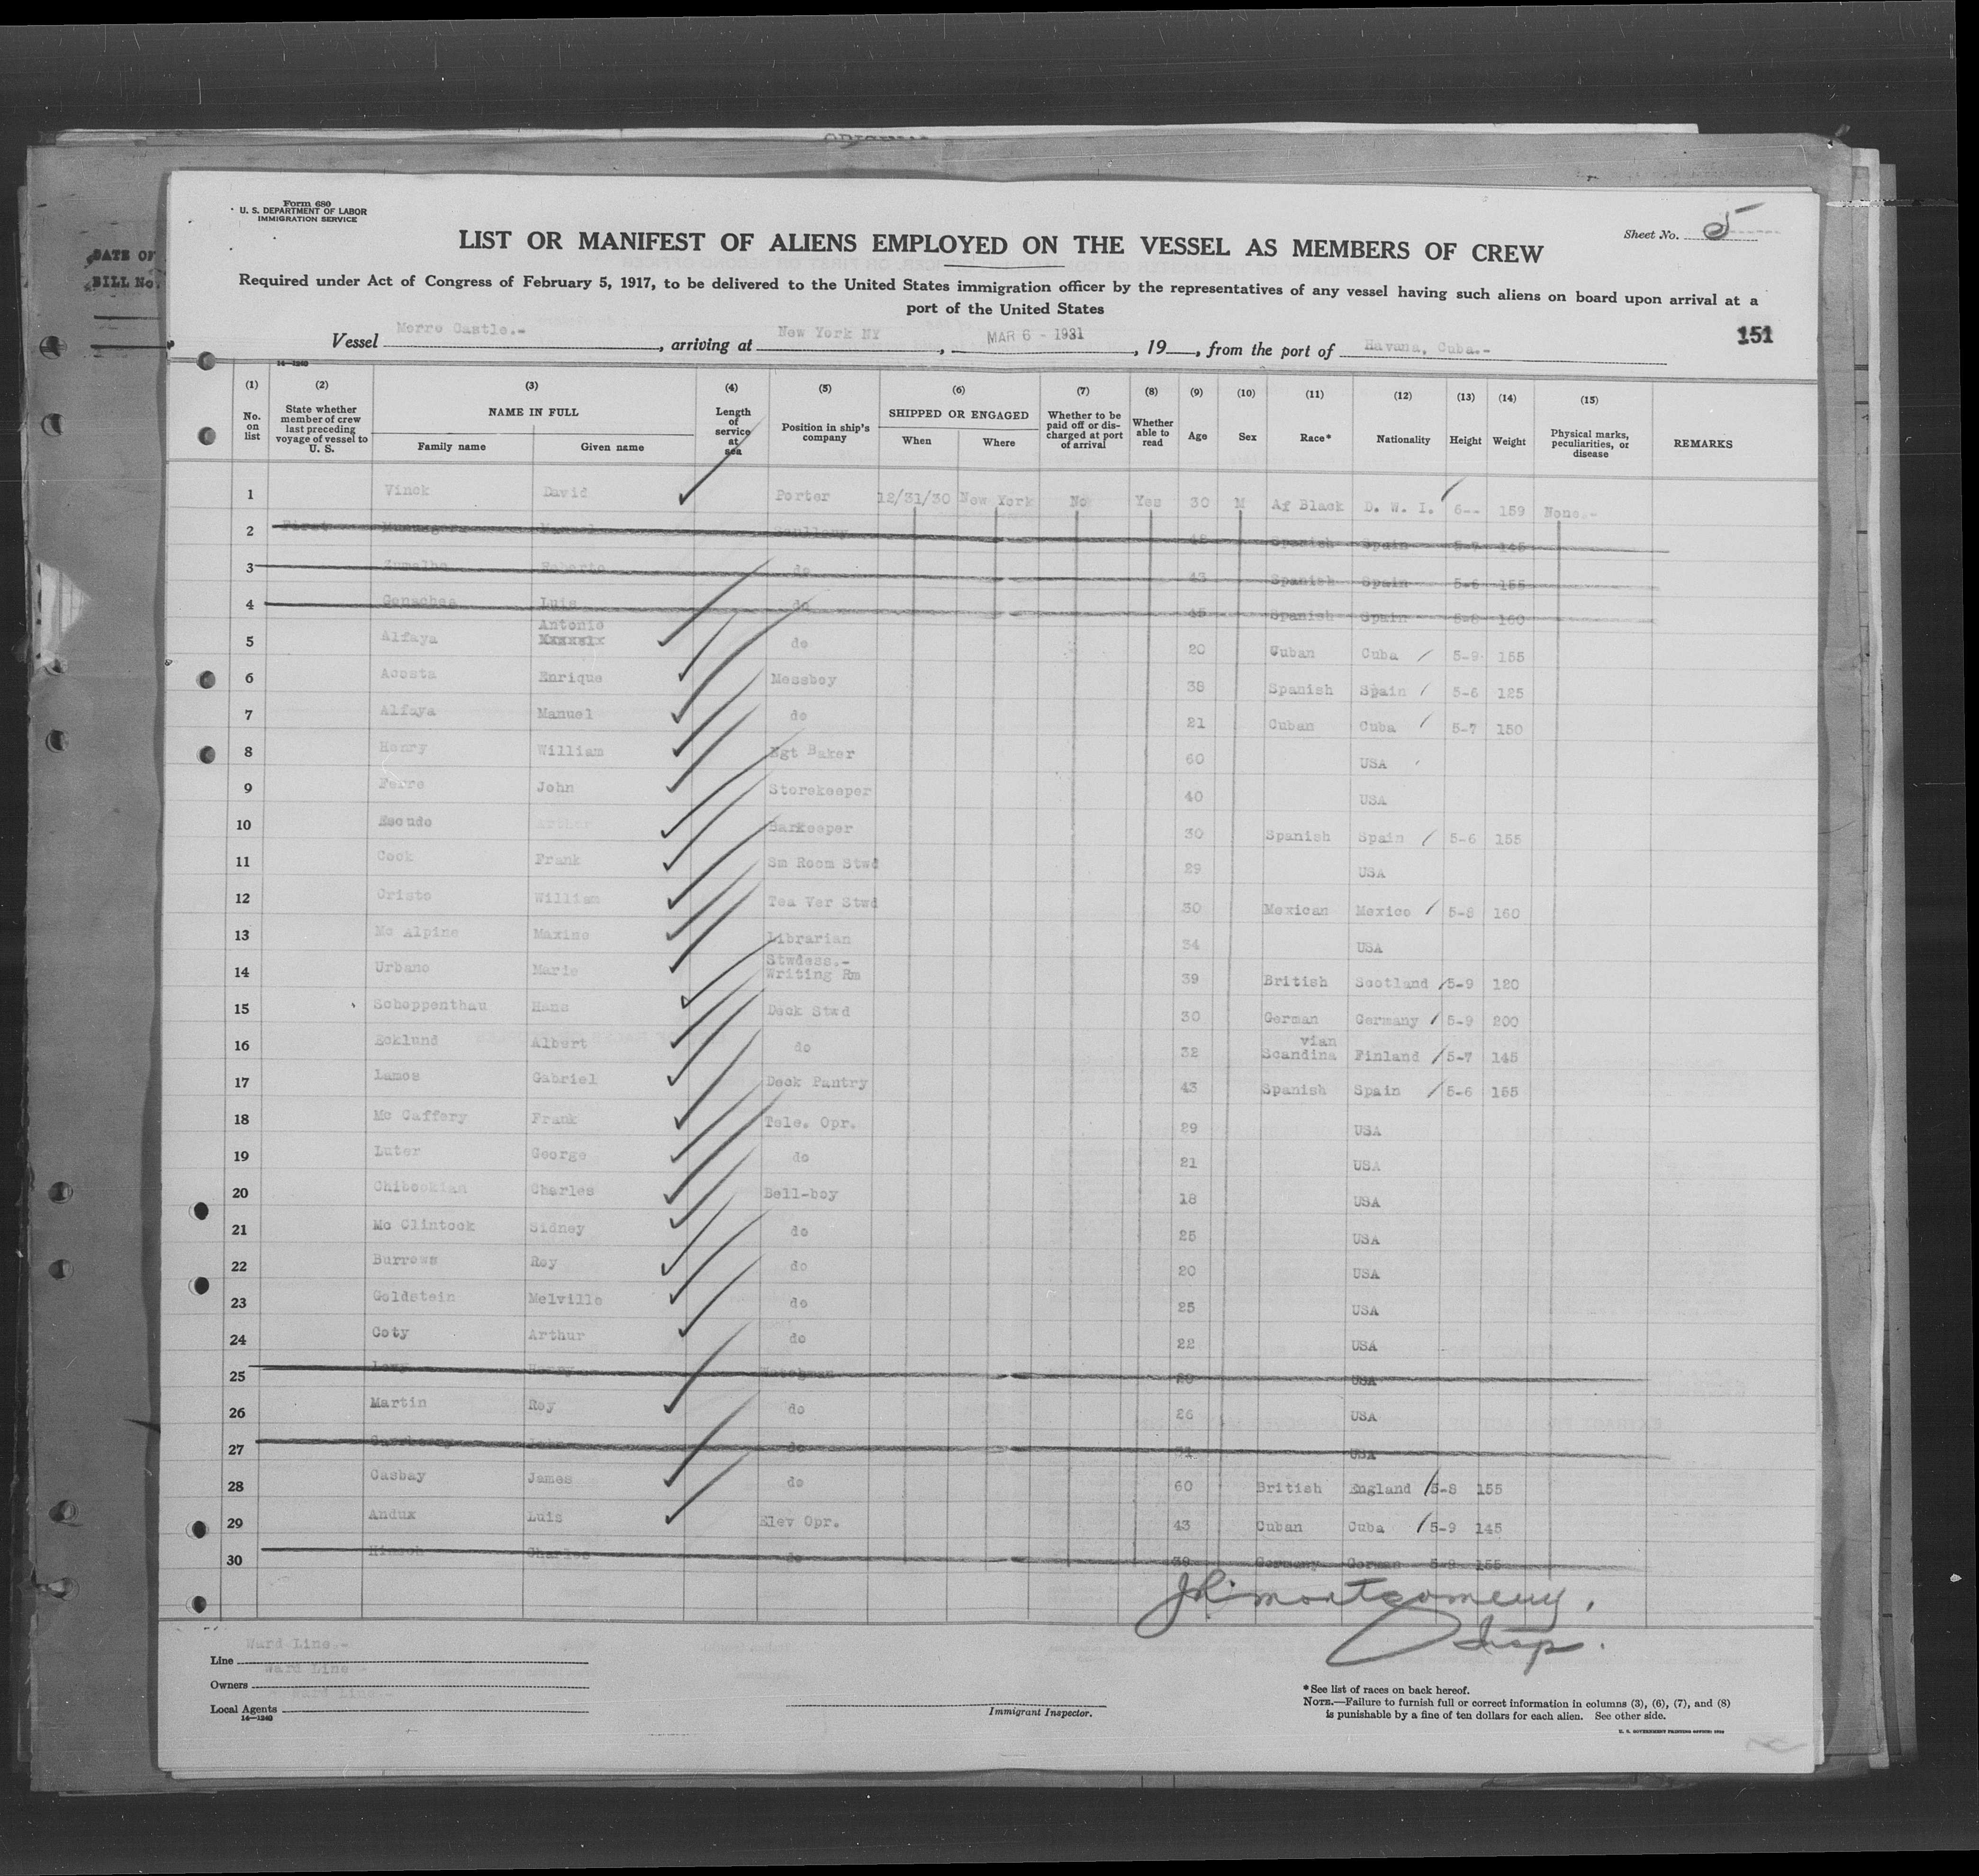 ORIGINAL
DATE OF
BILL No.
Form 680
U. S. DEPARTMENT OF LABOR
IMMIGRATION SERVICE
Sheet No. 5
LIST OR MANIFEST OF ALIENS EMPLOYED ON THE VESSEL AS MEMBERS OF CREW
Required under Act of Congress of February 5, 1917, to be delivered to the United States immigration officer by the representatives of any vessel having such aliens on board upon arrival at a
port of the United States
151
Vessel Morro Castle.-, arriving at New York NY, MAR 6 - 1931, 19, from the port of Havana, Cuba.-
14—1240
(1) (2) (3) (4) (5) (6) (7) (8) (9) (10) (11) (12) (13) (14) (15)
No. on list
State whether member of crew last preceding voyage of vessel to U. S.
NAME IN FULL
Family name Given name
Length of service at sea
Position in ship's company
SHIPPED OR ENGAGED
When Where
Whether to be paid off or discharged at port of arrival
Whether able to read
Age Sex Race* Nationality Height Weight
Physical marks, peculiarities, or disease
REMARKS
1 Vinck David Porter 12/31/30 New York No Yes 30 M Af Black D. W. I. 6-- 159 None.-
2 First Manuel Scullony 45 Spanish Spain 5-7 145
3 Roberto do 43 Spanish Spain 5-6 155
4 Luis do 45 Spanish Spain 5-8 160
5 Alfaya Antonio do 20 Cuban Cuba 5-9 155
6 Acosta Enrique Messboy 38 Spanish Spain 5-6 125
7 Alfaya Manuel do 21 Cuban Cuba 5-7 150
8 Henry William Ngt Baker 60 USA
9 Ferro John Storekeeper 40 USA
10 Escudo Arthur Barkeeper 30 Spanish Spain 5-6 155
11 Cook Frank Sm Room Stwd 29 USA
12 Cristo William Tea Ver Stwd 30 Mexican Mexico 5-8 160
13 Mc Alpine Maxine Librarian 34 USA
14 Urbano Marie Stwdess.- Writing Rm 39 British Scotland 5-9 120
15 Schoppenthau Hans Deck Stwd 30 German Germany 5-9 200
16 Ecklund Albert do 32 Scandinavian Finland 5-7 145
17 Lamos Gabriel Deck Pantry 43 Spanish Spain 5-6 155
18 Mc Caffery Frank Tele. Opr. 29 USA
19 Luter George do 21 USA
20 Charles Bell-boy 18 USA
21 Mc Clintock Sidney do 25 USA
22 Burrows Roy do 20 USA
23 Goldstein Melville do 25 USA
24 Coty Arthur do 22 USA
25 Levy Henry Watchman 29 USA
26 Martin Roy do 26 USA
27 John do 31 USA
28 Casbay James do 60 British England 5-8 155
29 Andux Luis Elev Opr. 43 Cuban Cuba 5-9 145
30 Hinsch Charles do 39 Germany German 5-9 155
Montgomery,
Insp.
Line Ward Line.-
Owners Ward Line-
Local Agents Ward Line.-
14—1240
Immigrant Inspector.
*See list of races on back hereof.
NOTE.—Failure to furnish full or correct information in columns (3), (6), (7), and (8)
is punishable by a fine of ten dollars for each alien. See other side.
U. S. GOVERNMENT PRINTING OFFICE: